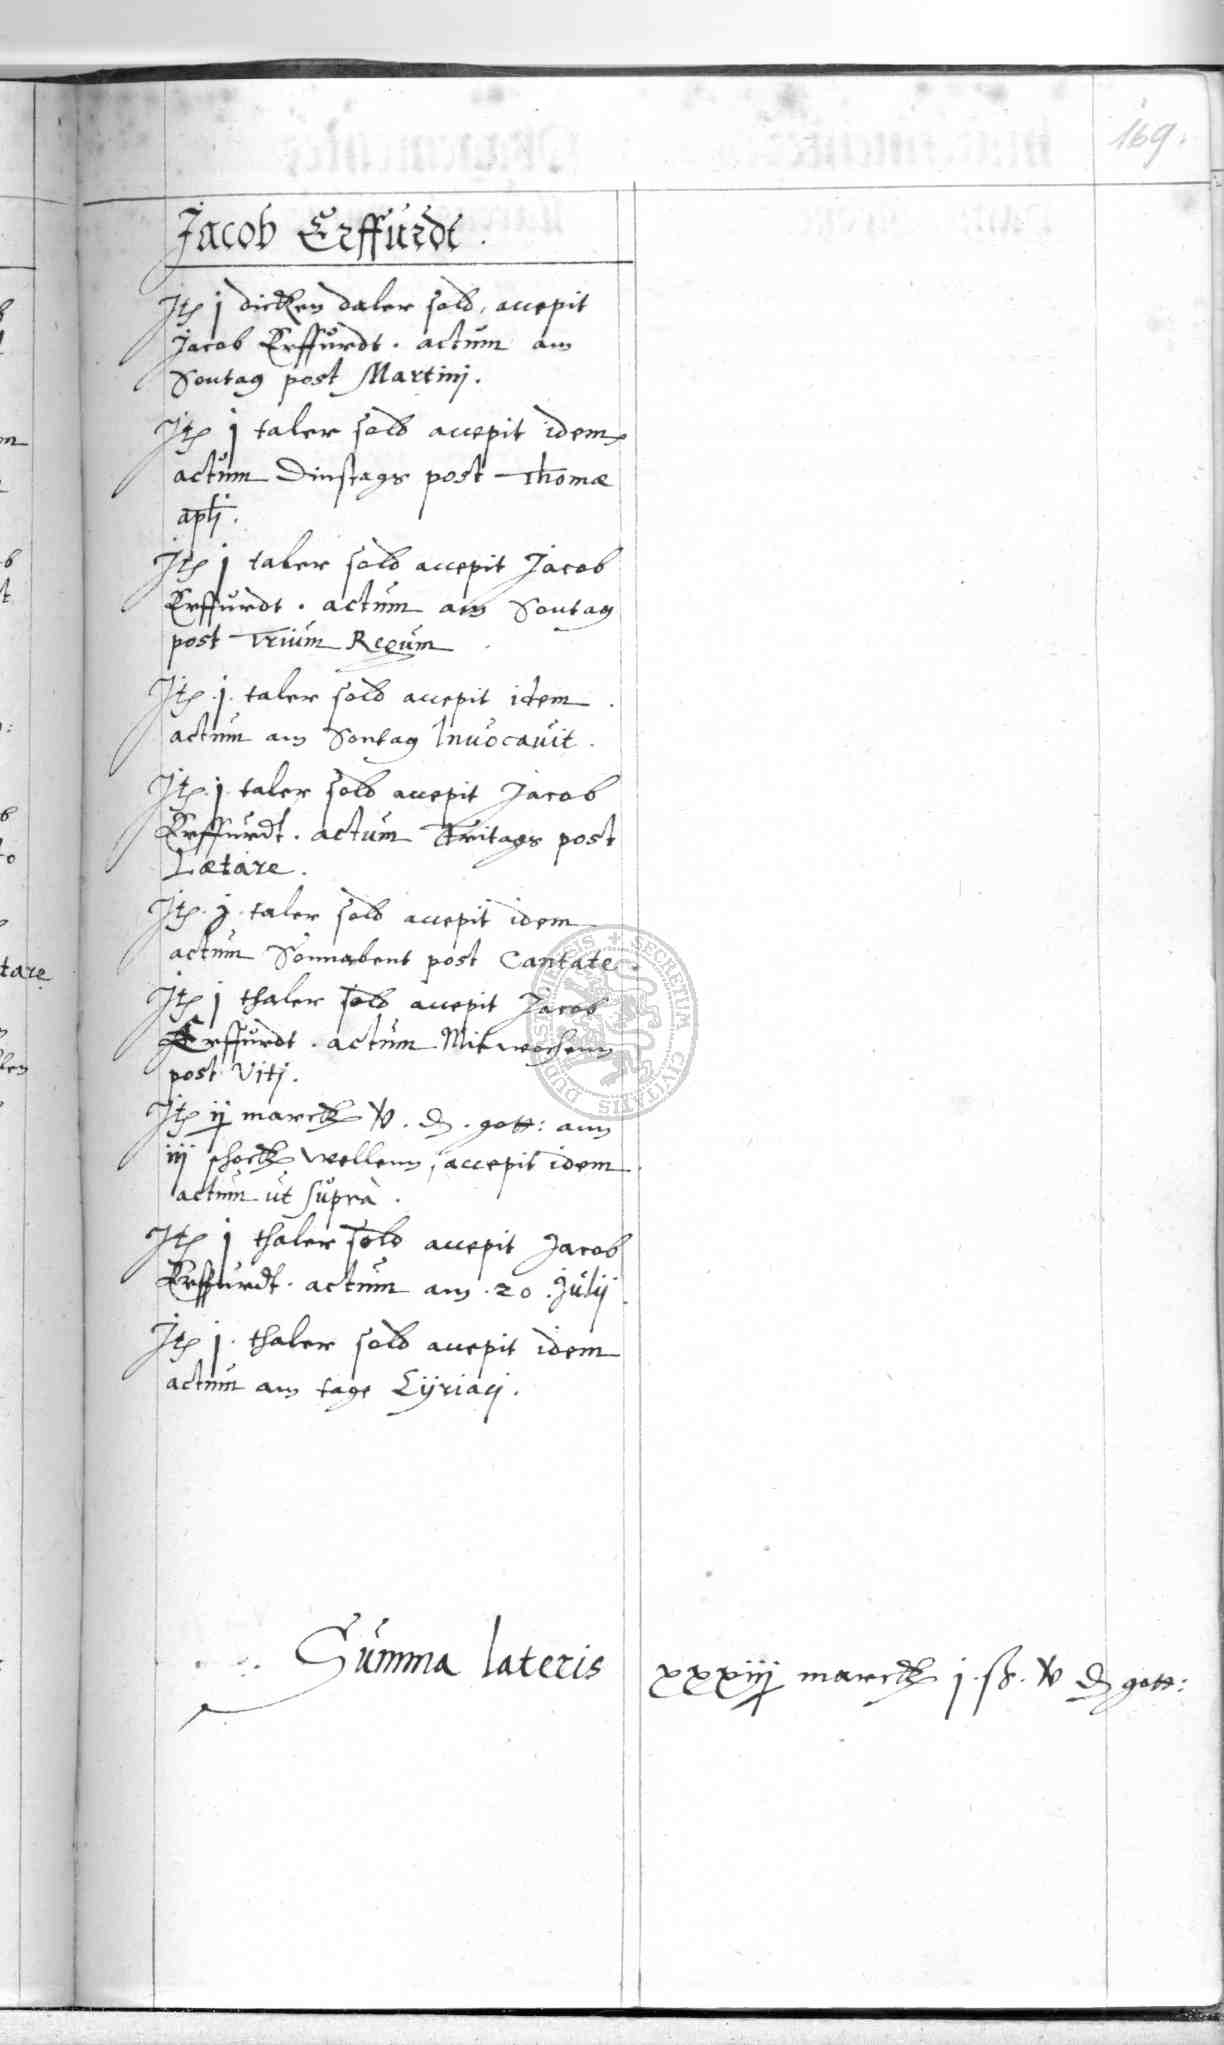 169.
Jacob Erffurdt.
Jtē j dicken daler sold, accepit
Jacob Erffurdt. actum am
Sontag post Martinj.
Jtē j taler sold accepit idem
actum Dinstags post Thomæ
apli.
Jtē j taler sold accepit Jacob
Erffurdt. actum am Sontag
post Trium Regum
Jtē .j. taler sold accepit idem
actum am Sontag Inuocauit.
Jtē .j. taler sold accepit Jacob
Erffurdt. actum Fritags post
Lætare.
Jtē .j. taler sold accepit idem
actum Sonnabent post Cantate.
Jtē j thaler sold accepit Jacob
Erffurdt. actum Mitwochenn
post Vitj.
Jtē ij marck v. d. gott: ann
iij schock wellenn, accepit idem
actum ut supra.
Jtē j thaler sold accepit Jacob
Erffurdt. actum am .20. Julij
Jtē j. thaler sold accepit idem
actum am tage Cijriaci.
Summa lateris xxxiij marck j. ß. v d gott:
SECRETUM CIVITATIS